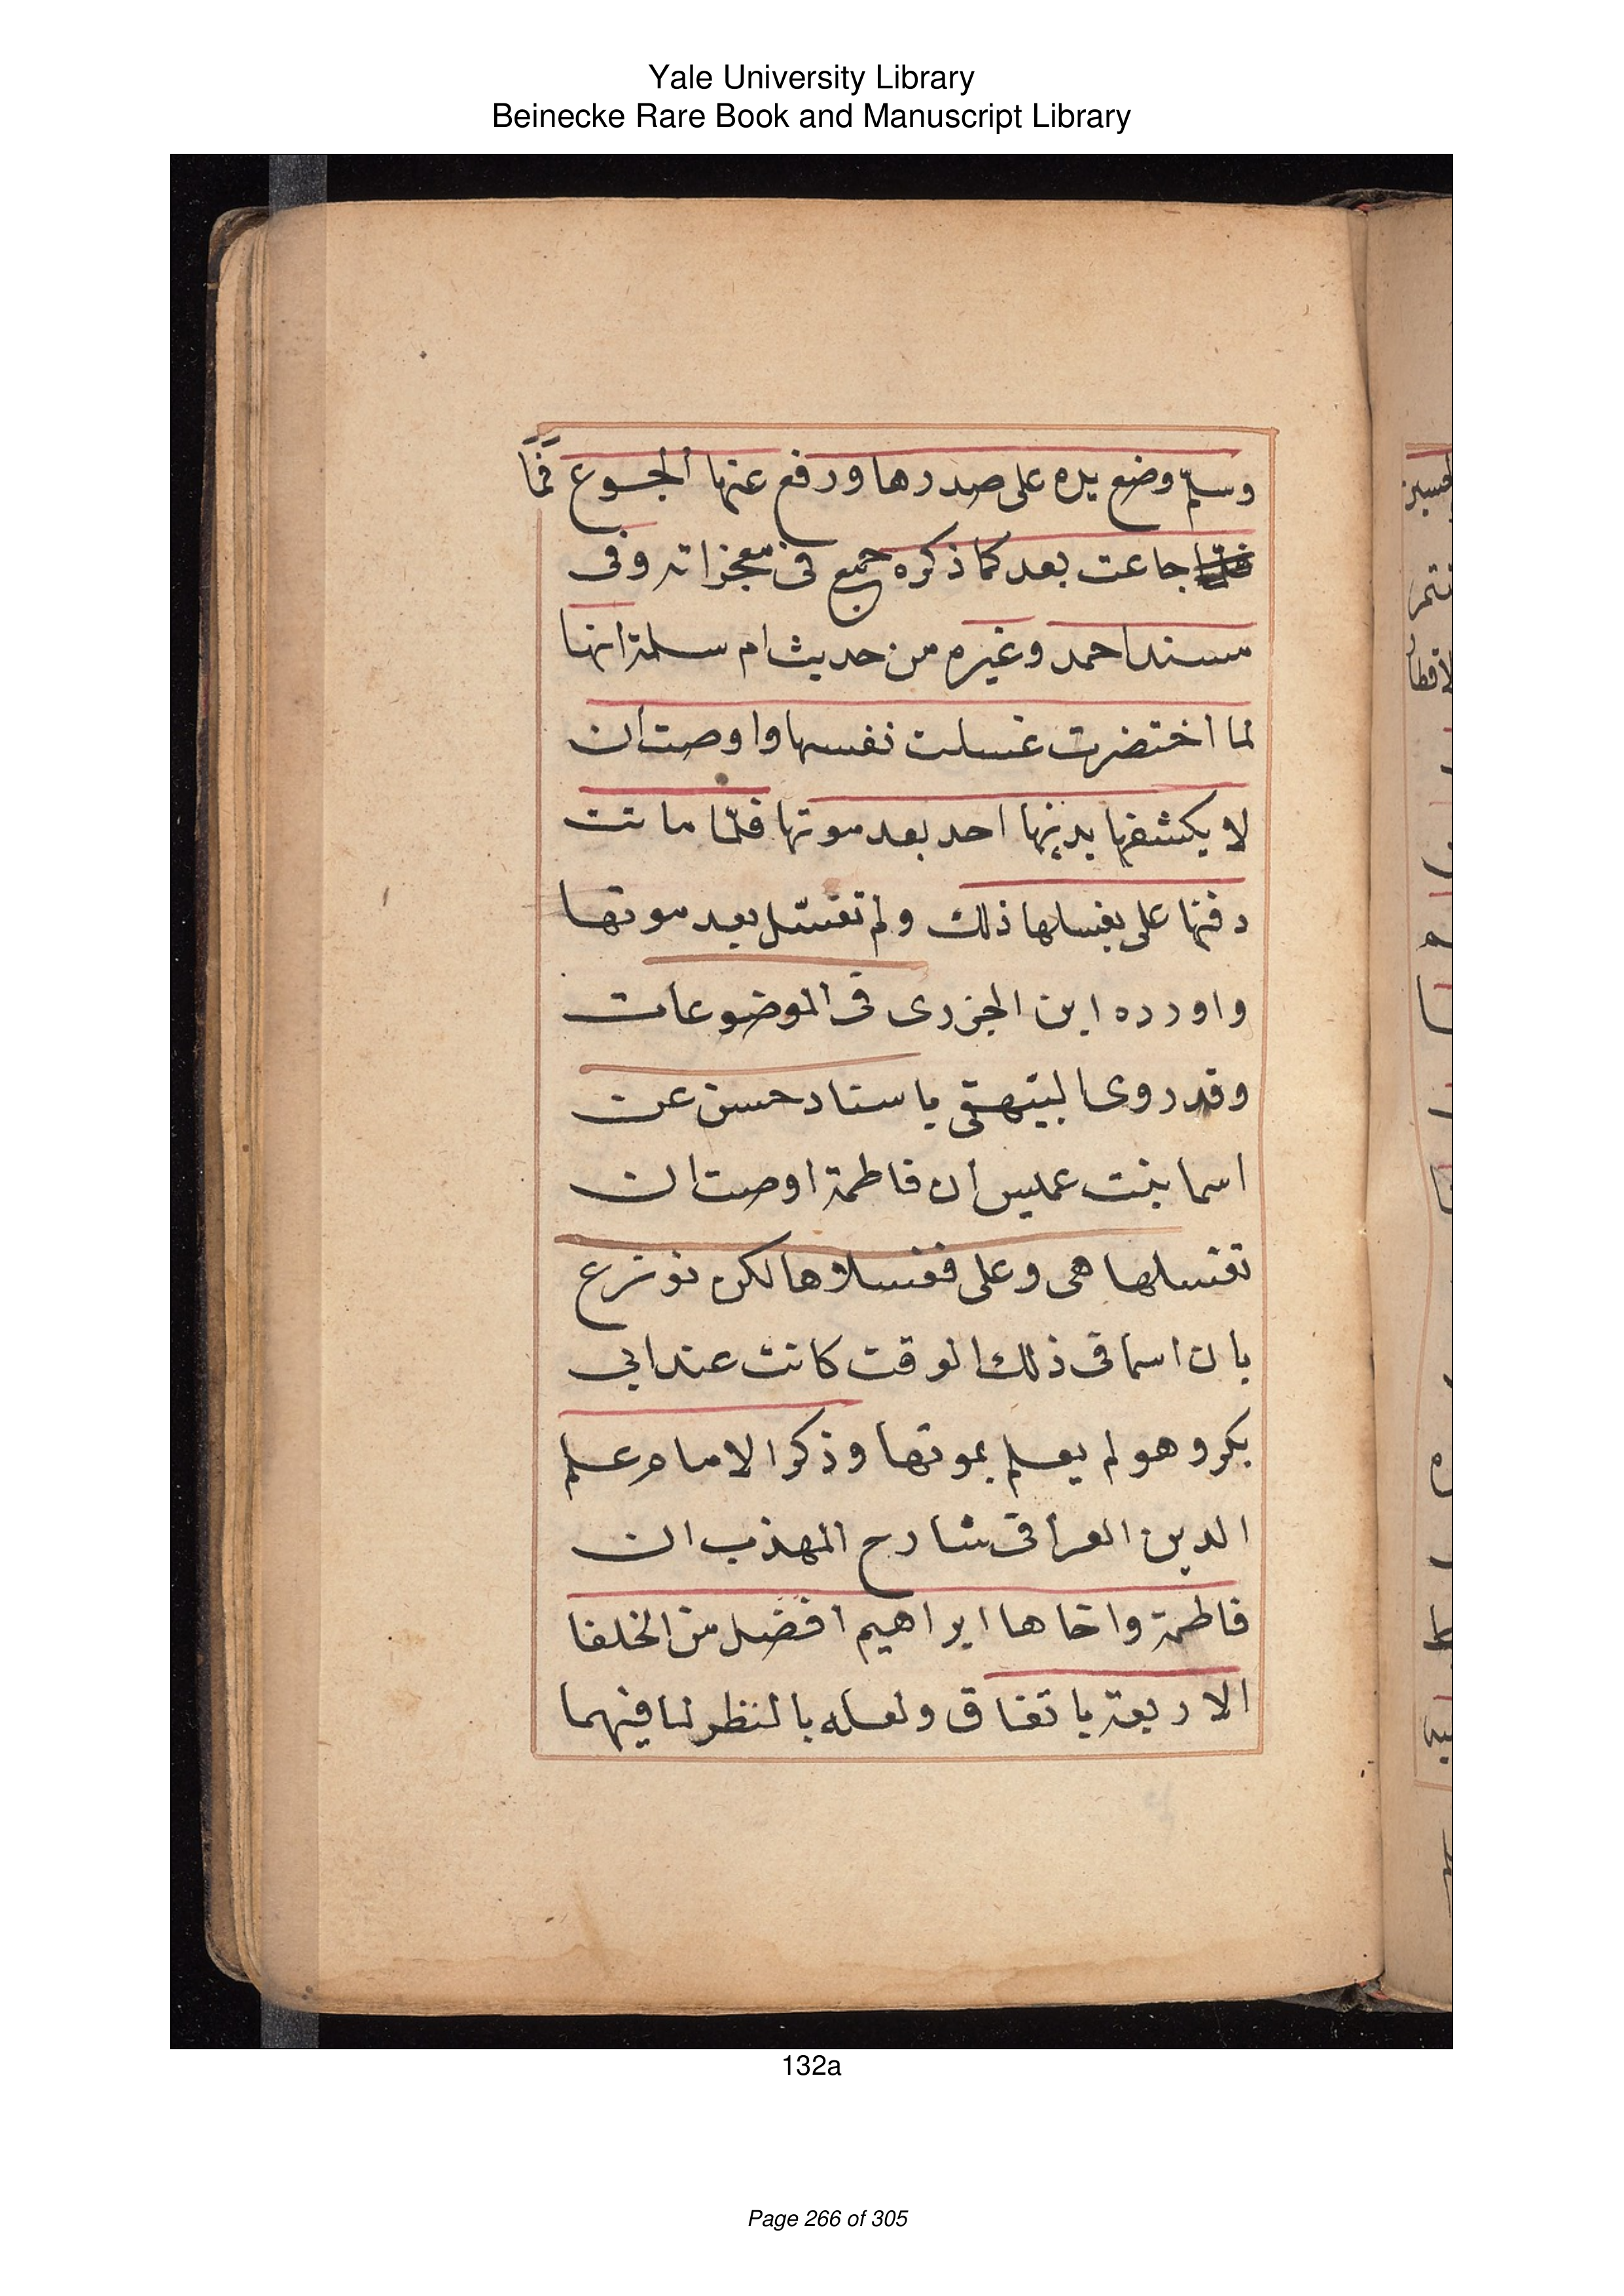 Yale University Library
Beinecke Rare Book and Manuscript Library
وسلم وضع يده على صدرها ورفع عنها الجوع فما
جاعت بعد كما ذكره جميع فى معجزاته وفى
مسند احمد وغيره من حديث ام سلمة انها
لما اختضرت غسلت نفسها واوصت ان
لا يكشفها بدنها احد بعد موتها فلما ماتت
دفنها على بغسلها ذلك ولم تغسل بعد موتها
واورده ابن الجزرى فى الموضوعات
وقد روى البيهقى باسناد حسن عن
اسما بنت عميس ان فاطمة اوصت ان
تغسلها هى وعلى فغسلاها لكن نوزع
بان اسما فى ذلك الوقت كانت عند ابى
بكر وهو لم يعلم بموتها وذكر الامام علم
الدين العراقى شارح المهذب ان
فاطمة واخاها ابراهيم افضل من الخلفا
الاربعة باتفاق ولعله بالنظر لما فيهما
132a
Page 266 of 305